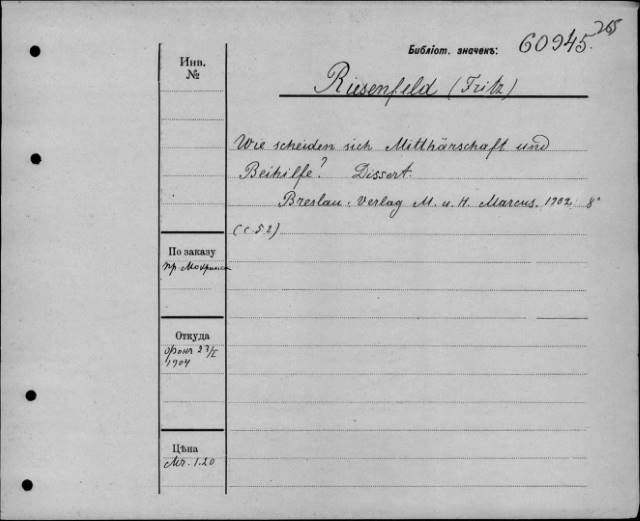 265
Библіот. значекъ: 60945.
Инв.
№
Riesenfeld (Fritz)
Wie scheiden sich Mitthärschaft und
Beihilfe? Dissert.
Breslau, Verlag M. u. H. Marcus. 1902. 8°
(c. 52)
По заказу
пр.
Откуда
23/I
1904
Цѣна
Mr. 1.20